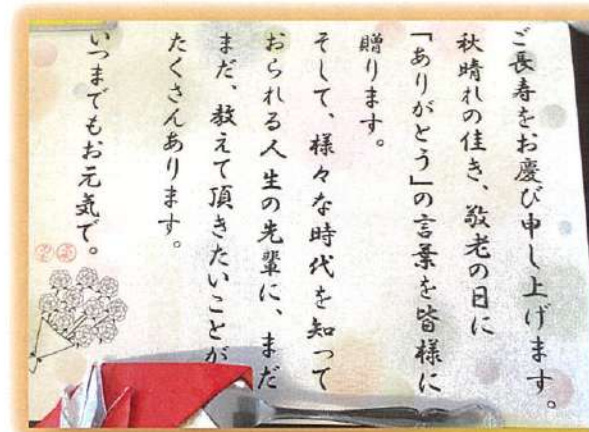 ご長寿をお慶び申し上げます。
秋晴れの佳き、敬老の日に
「ありがとう」の言葉を皆様に
贈ります。
そして、様々な時代を知って
おられる人生の先輩に、まだ
まだ、教えて頂きたいことが
たくさんあります。
いつまでもお元気で。